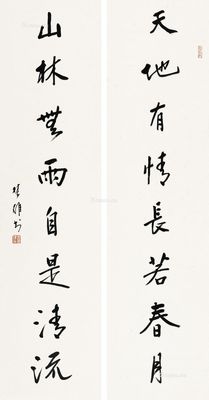 天地有情長若春月
山林無雨自是清流